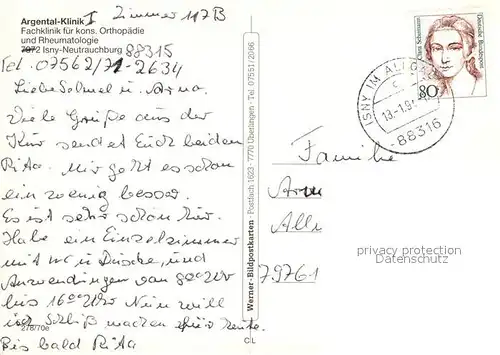 Argental-Klinik I Zimmer 117B
Fachklinik für kons. Orthopädie
und Rheumatologie
7972 Isny-Neutrauchburg 88315
Tel. 07562/71-2634
Liebe u.
Viele Grüße aus der
Kur sendet Euch beiden
Rita. Mir geht es schon
ein wenig besser.
Es ist sehr schön hier.
Habe ein Einzelzimmer
mit WC u Dusche, und
Anwendungen von 8 Uhr
bis 16 Uhr Nun will
ich Schluß machen für heute.
Bis bald Rita
278/70e
Werner-Bildpostkarten · Postfach 1623 · 7770 Überlingen · Tel. 07551/2066
CL
Clara Schumann
Deutsche Bundespost
80
ISNY IM ALLGÄU
88316
Familie
79761
privacy protection
Datenschutz